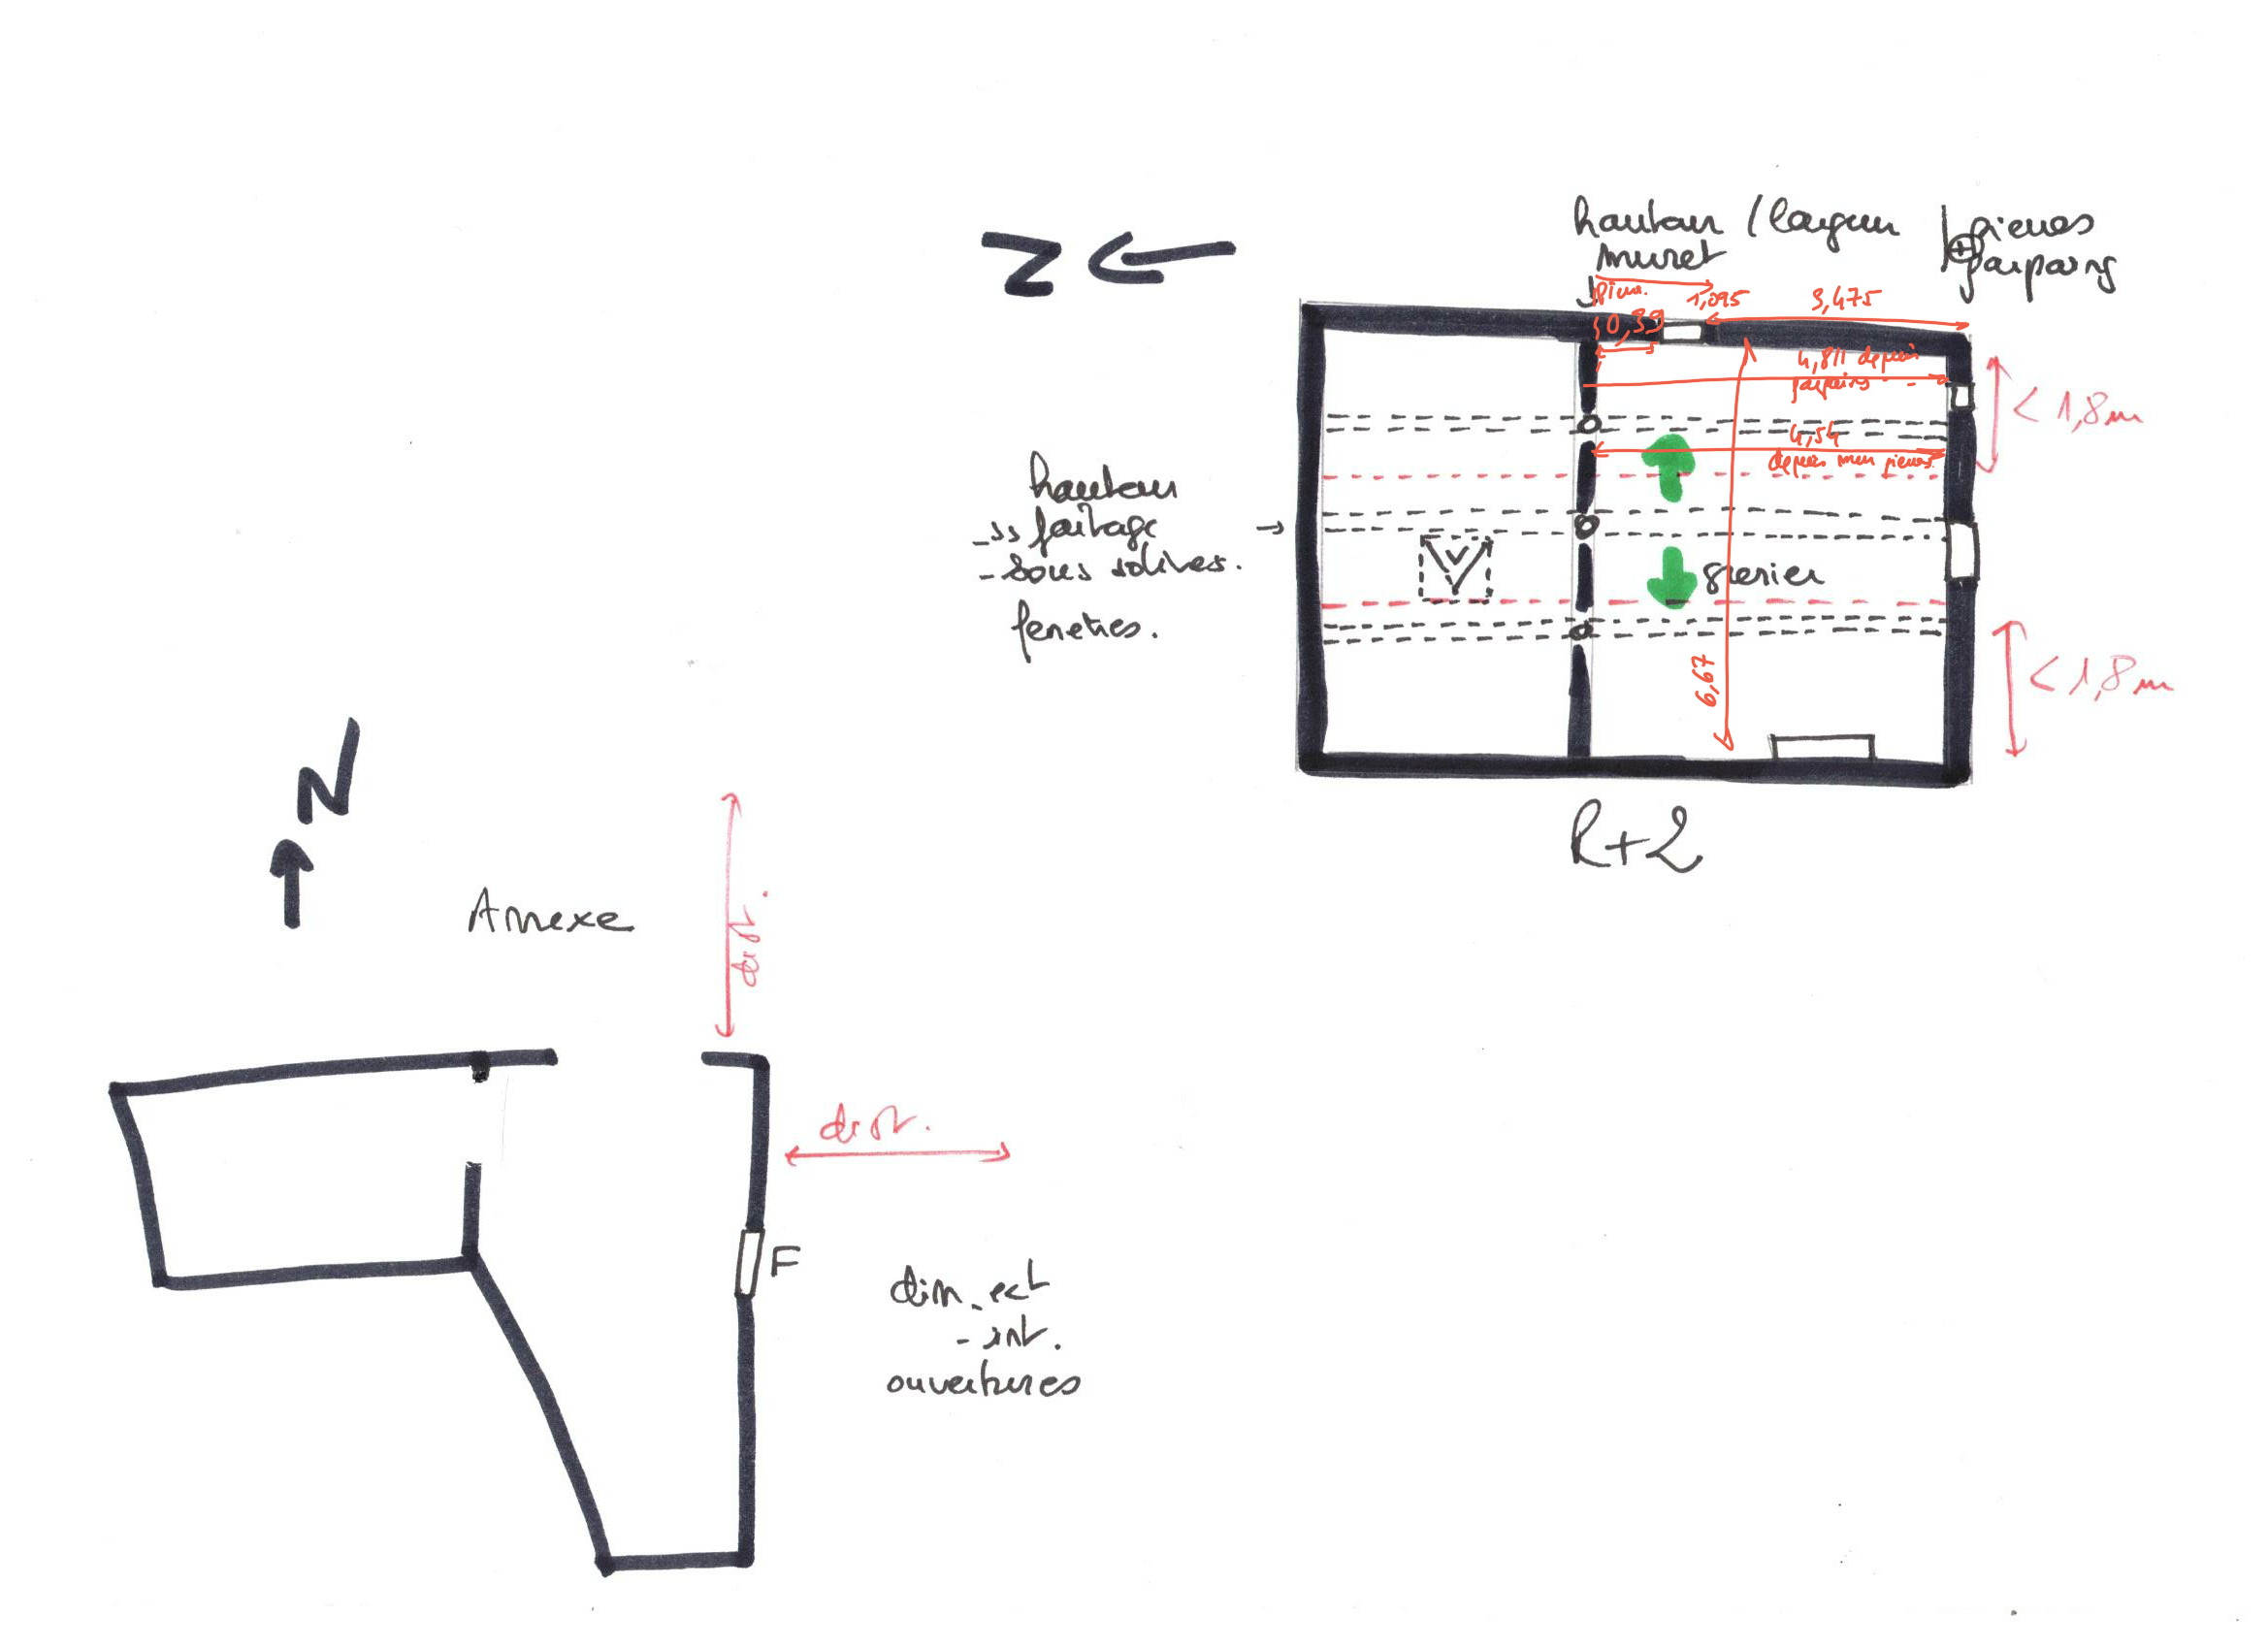 hauteur / largeur
muret
pierres
+
parpaing
N
pier.
1,095
3,475
0,39
4,811 depuis
parpaing
< 1,8 m
4,54
depuis mur pierres
hauteur
- ss faitage
- sous solives.
fenetres.
grenier
6,67
< 1,8 m
R+2
N
Annexe
dist.
dist.
F
dim. ext
- int.
ouvertures